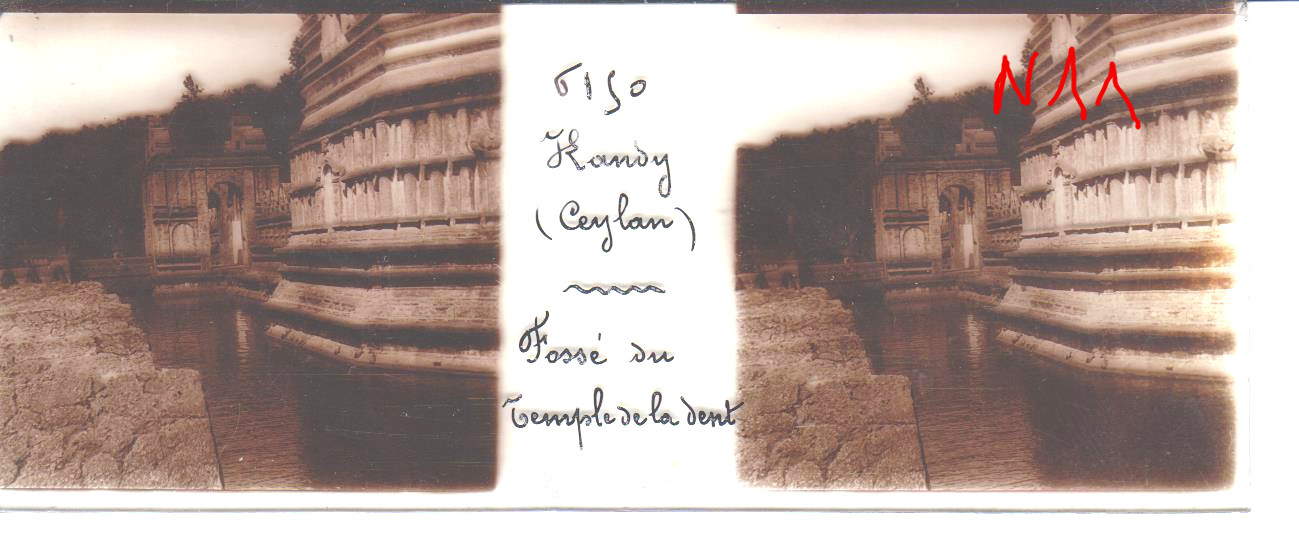 Kandy
(Ceylan)
Fossé du
Temple de la dent
N11